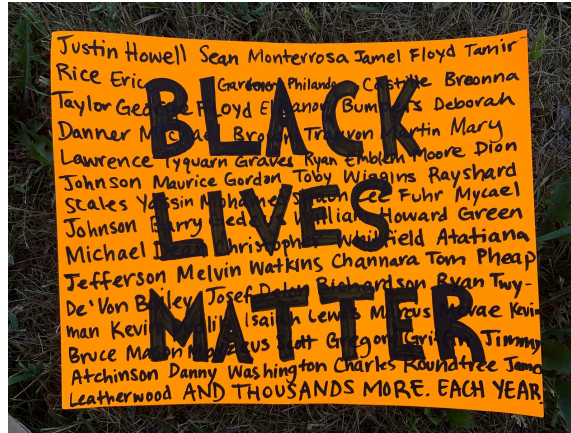 Justin Howell Sean Monterrosa Jamel Floyd Tamir
Rice Eric Garner Philando Castille Breonna
Taylor George Floyd Eleanor Bumpurs Deborah
BLACK
Danner Michael Brown Trayvon Martin Mary
Lawrence Tyquarn Graves Ryan Emblem Moore Dion
Johnson Maurice Gordon Toby Wiggins Rayshard
Scales Yassin Mohamed Lee Fuhr Mycael
Johnson William Howard Green
LIVES
Michael Dean Christopher Whitfield Atatiana
Jefferson Melvin Watkins Channara Tom Pheap
De'Von Bailey Josef Richardson Ryan Twy-
man Kevin Isaiah Lewis Marcus Kevin
MATTER
Bruce Mason Scott Gregory Griffin Jimmy
Atchinson Danny Washington Charles Roundtree
Leatherwood AND THOUSANDS MORE. EACH YEAR.